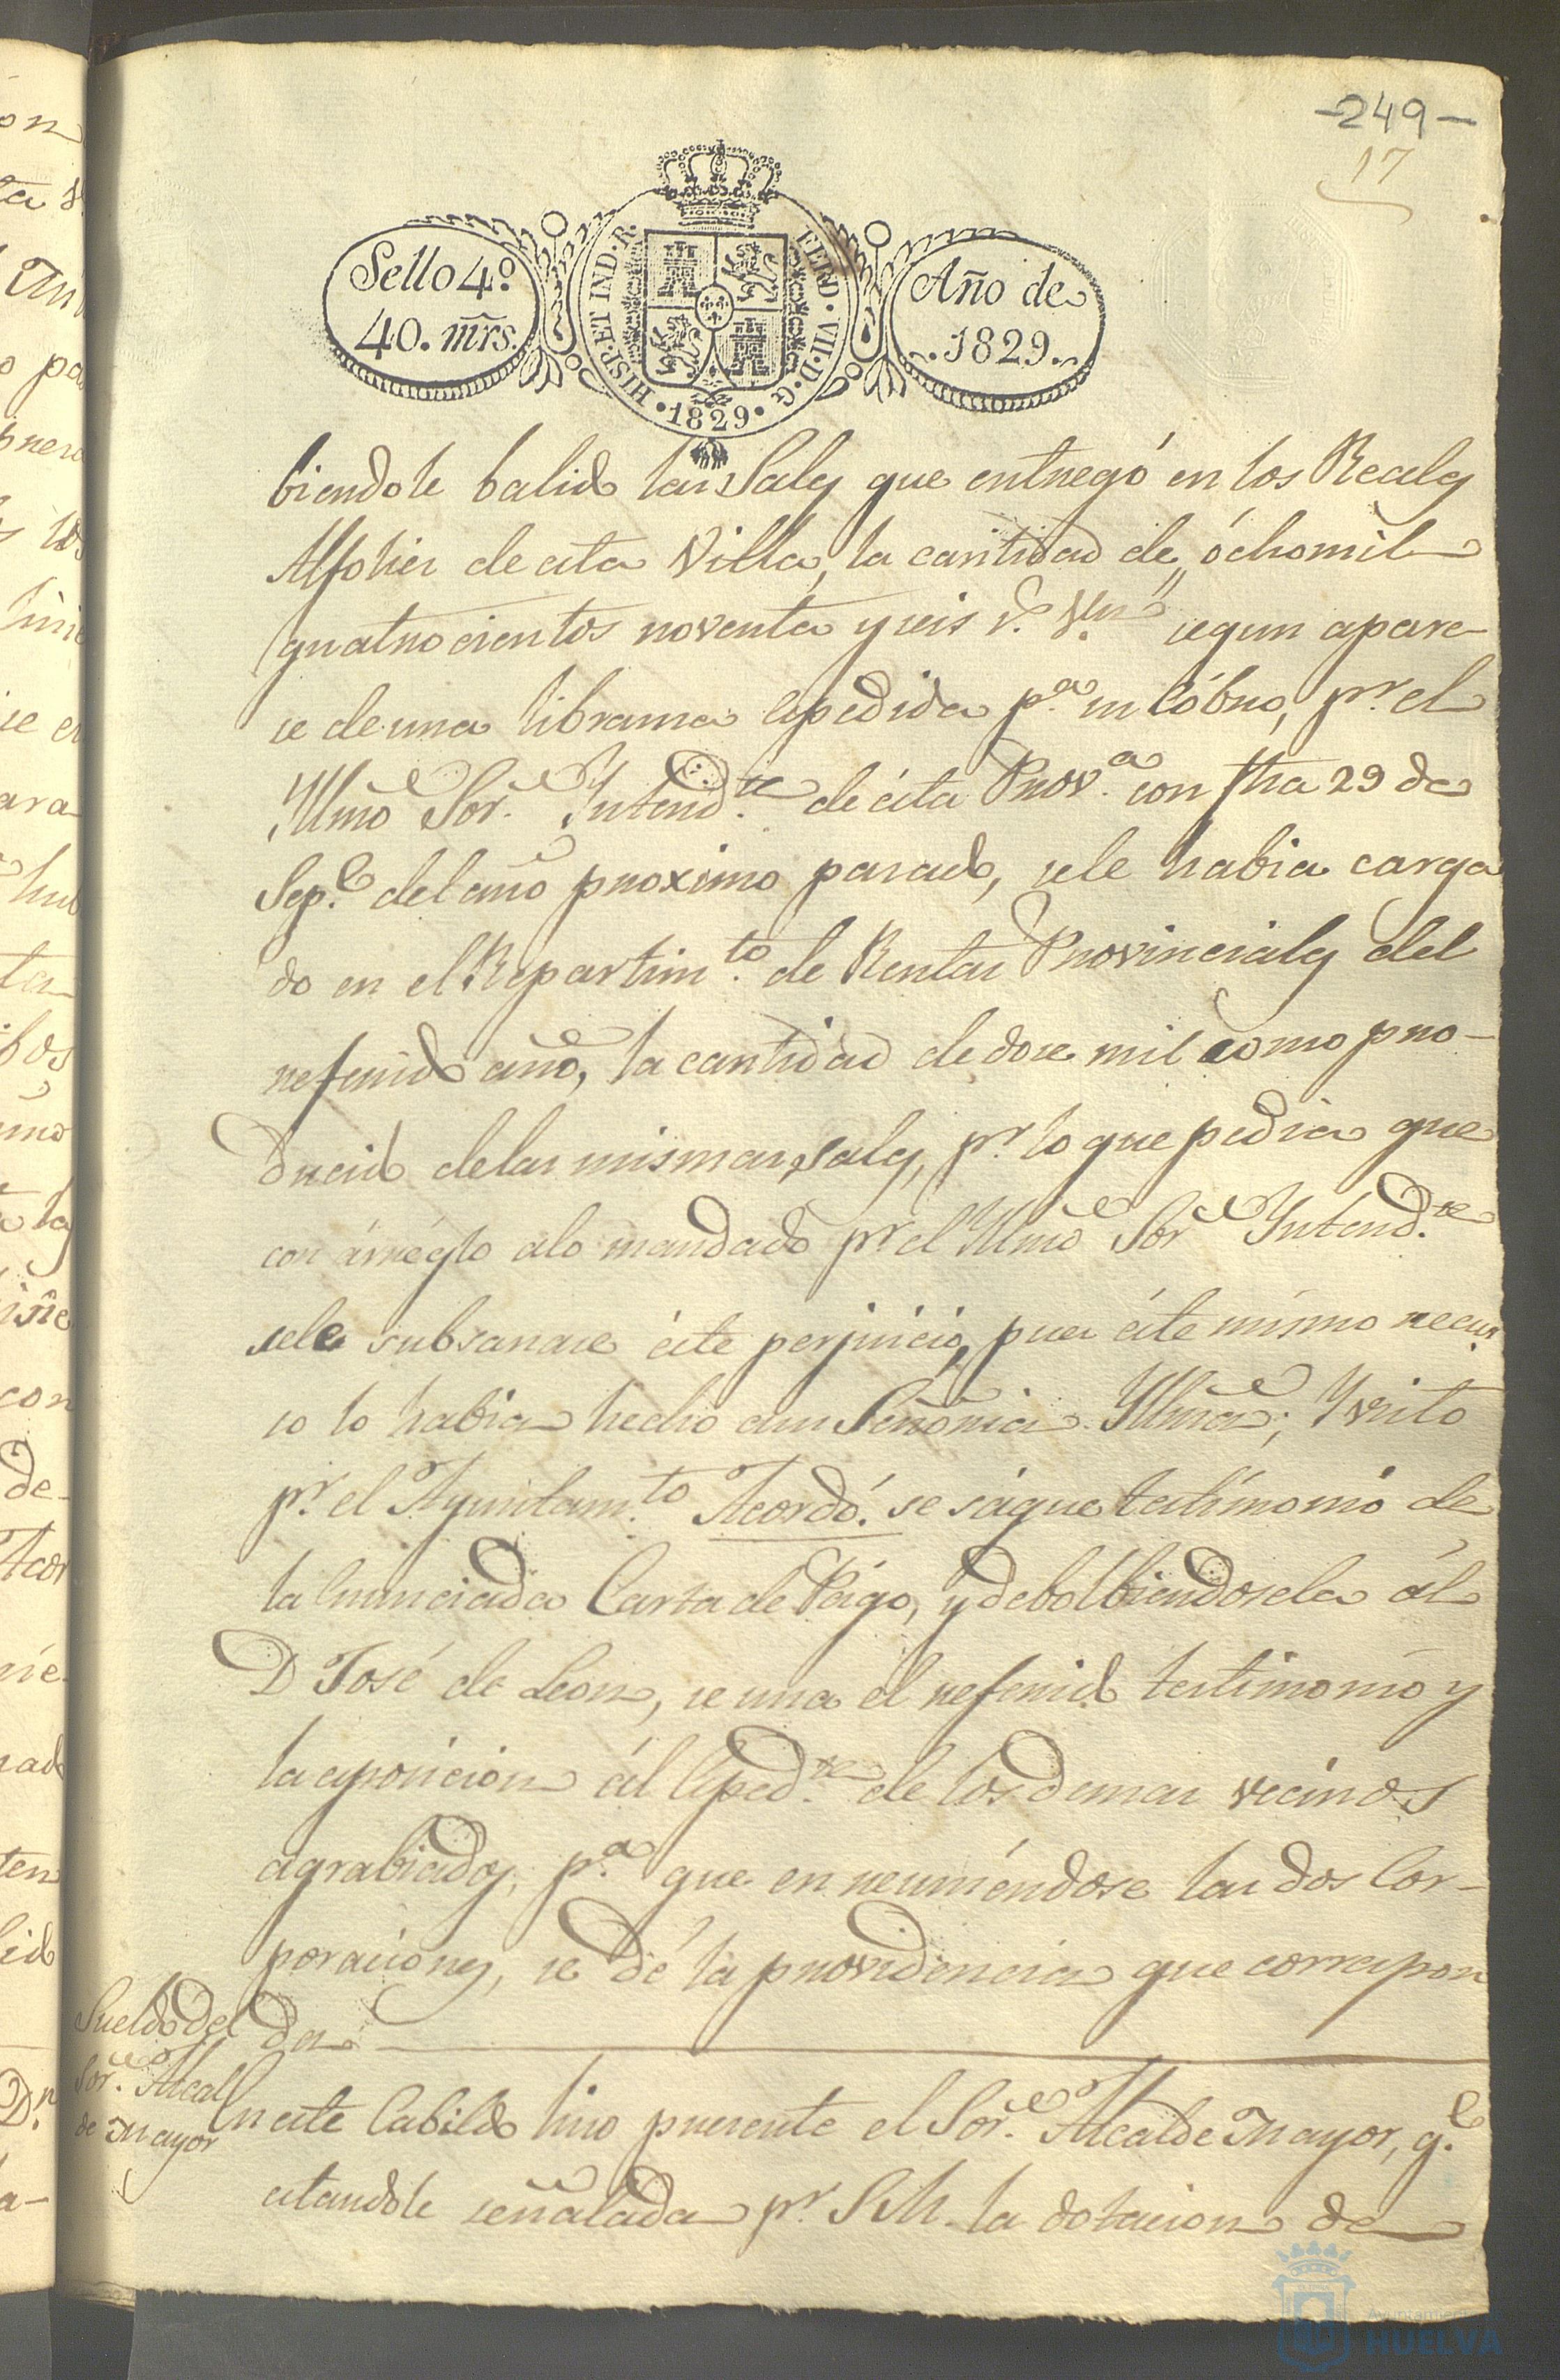 -249-
17
Sello 4º
40. mr̃s.
HISP. ET IND. R.
FERD. VII. D. G.
1829
Año de
1829.
biendole balido las Sales que entregó en los Reales
Alfolies de esta Villa, la cantidad de, óchomil
quatrocientos noventa y seis r.s V.n segun apare-
se de una libransa espedida p.a su cóbro, p.r el
Yllmo Sor. Yntend.te de ésta Prov.a con fha 29 de
Sep.e del año proximo pasado, sele habia carga
do en el Repartim.to de Rentas Provinciales del
referido año, la cantidad de dose mil como pro-
ducido delas mismas, sales, p.r lo que pedia que
con árréglo alo mandado p.r el Yllmo Sor Yntend.te
sele subsanase éste perjuicio, pues éste mismo recur
so lo habia hecho asu Señoria Yllma; Y visto
p.r el Ayuntam.to Acordó: se sáque testimonio de
la Enunciada Carta de Págo, y debolbiendosela ál
D José de Leon, se una el referido testimonio y
la esposicion ál Esped.te de los demas vecinos
agrabiados, p.a que en reuniéndose las dos Cor-
poraciones, se dé la providencia que correspon
da
Sueldo del
Sor. Alcal
de Mayor
En este Cabildo hiso presente el Sor. Alcalde Mayor, q.e
estandole señalada p.r S.M. la dotacion de
Ayuntamiento
HUELVA
on